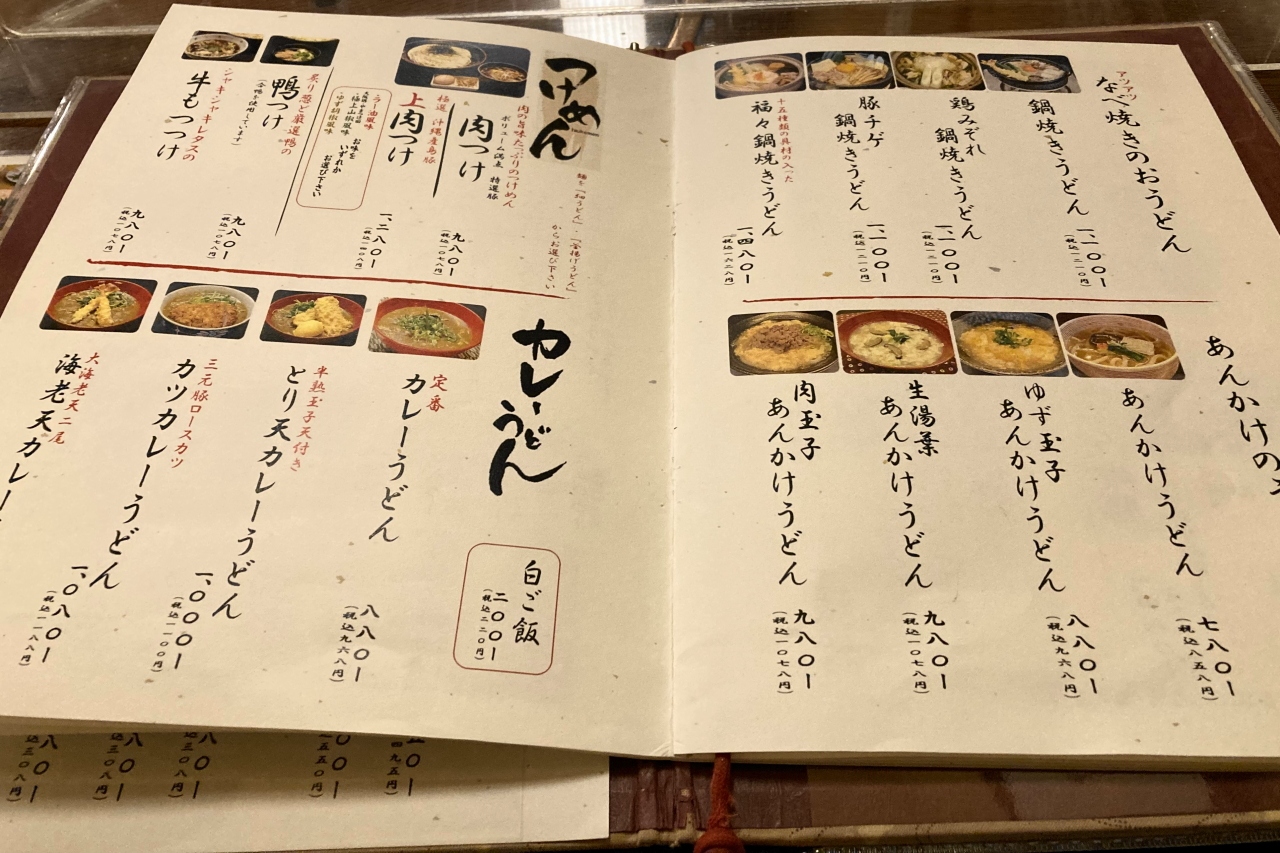 アツアツ
なべ焼きのおうどん
鍋焼きうどん
一、一〇〇ー
(税込一二一〇円)
鶏みぞれ
鍋焼きうどん
一、一〇〇ー
(税込一二一〇円)
豚チゲ
鍋焼きうどん
一、一〇〇ー
(税込一二一〇円)
十五種類の具材の入った
福々鍋焼きうどん
一、四八〇ー
(税込一六二八円)
あんかけの
あんかけうどん
七八〇ー
(税込八五八円)
ゆず玉子
あんかけうどん
八八〇ー
(税込九六八円)
生湯葉
あんかけうどん
九八〇ー
(税込一〇七八円)
肉玉子
あんかけうどん
九八〇ー
(税込一〇七八円)
つけめん
麺を「細うどん」・「釜揚げうどん」
からお選び下さい
肉の旨味たっぷりのつけめん
ボリューム満点 特選豚
肉つけ
九八〇ー
(税込一〇七八円)
極選 沖縄産島豚
上肉つけ
一、二八〇ー
・ラー油風味
・極上山椒風味
・ゆず胡椒風味
お味を
いずれか
お選び下さい
炙り葱と厳選鴨の
鴨つけ
(合鴨を使用しています)
九八〇ー
(税込一〇七八円)
シャキシャキレタスの
牛もつつけ
九八〇ー
(税込一〇七八円)
カレーうどん
定番
カレーうどん
八八〇ー
(税込九六八円)
半熟玉子天付き
とり天カレーうどん
一、〇〇〇ー
(税込一一〇〇円)
三元豚ロースカツ
カツカレーうどん
一、〇八〇ー
(税込一一八八円)
大海老天二尾
海老天カレー
白ご飯
二〇〇ー
(税込二二〇円)